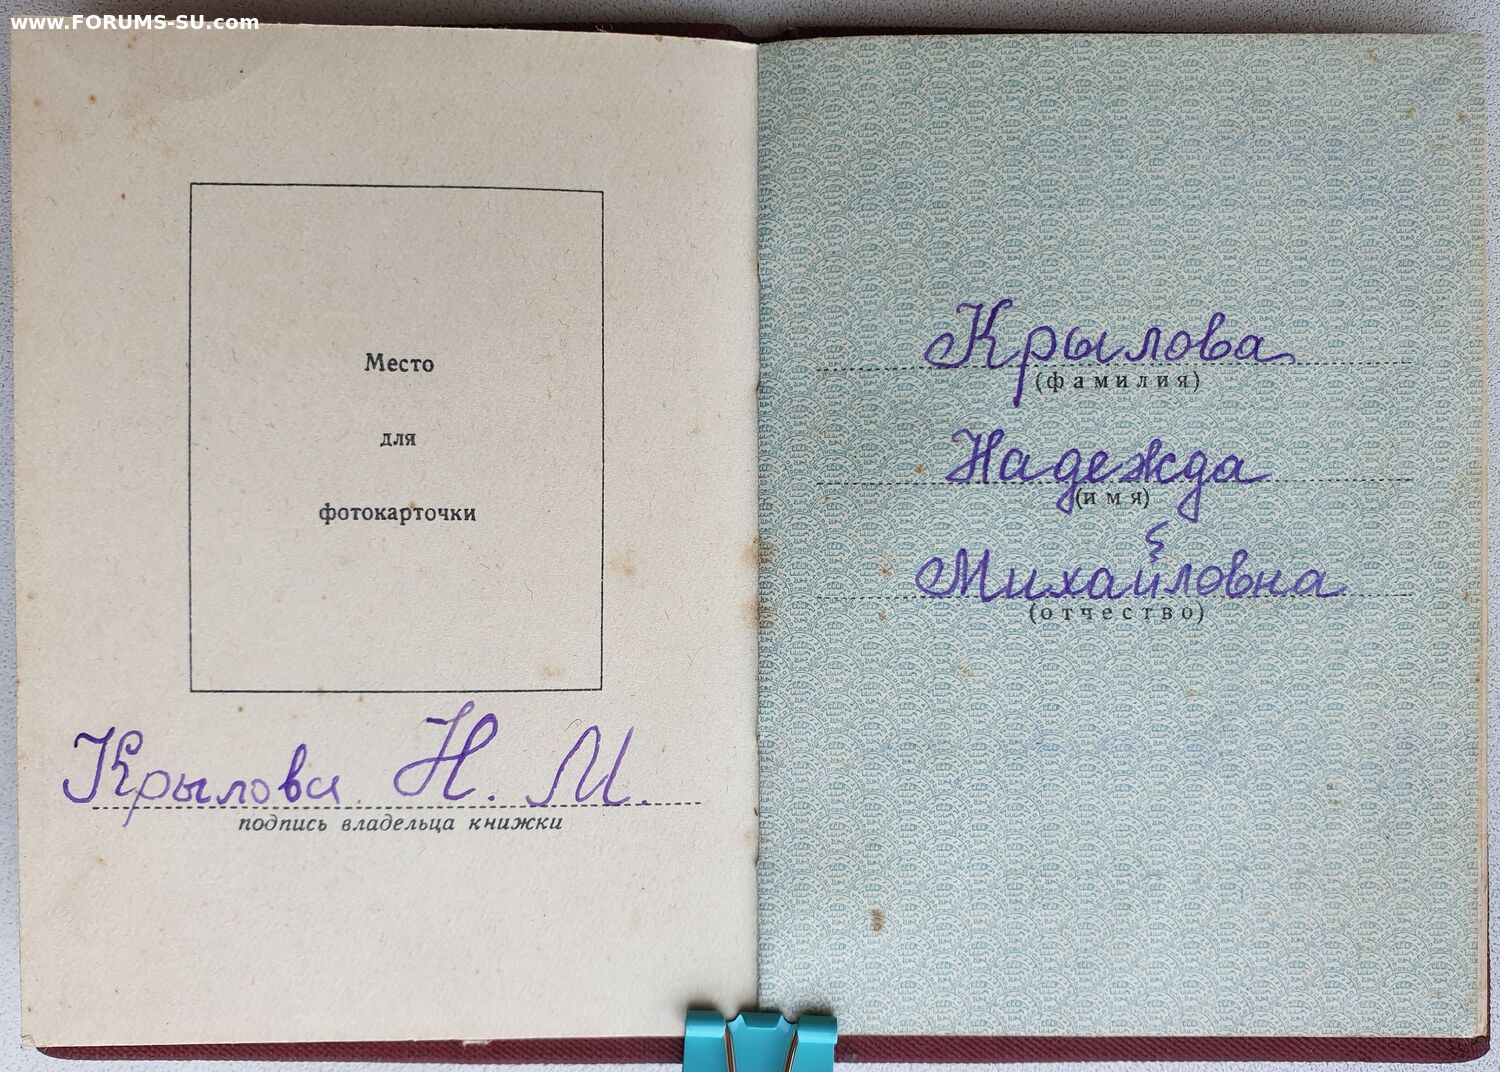 www.FORUMS-SU.com
Место
для
фотокарточки
Крылова Н. М.
подпись владельца книжки
Крылова
(фамилия)
Надежда
(имя)
Михайловна
(отчество)